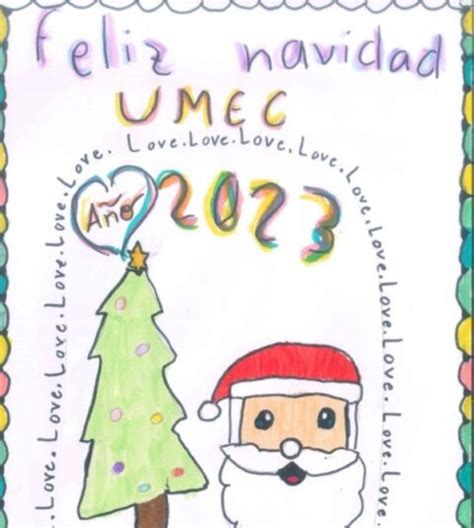 Feliz navidad
UMEC
Love.Love.Love.Love.Love.Love.Love.Love.Love.Love.Love.Love.Love.Love.Love.Love.Love.Love.Love
Año 2023